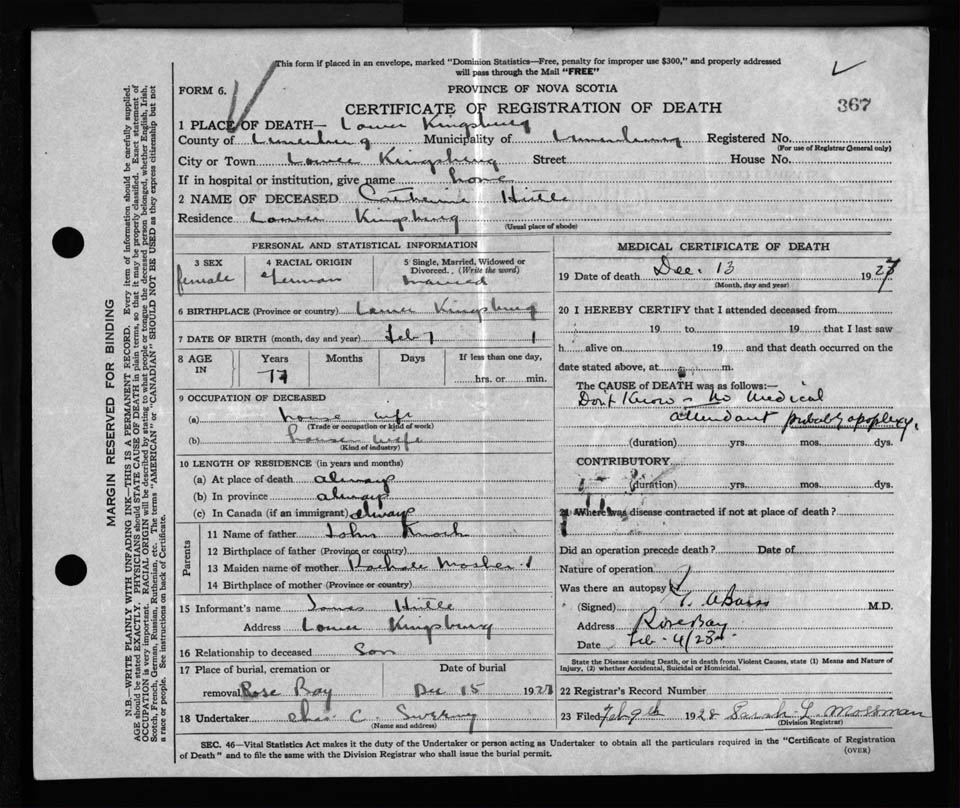 This form if placed in an envelope, marked "Dominion Statistics—Free, penalty for improper use $300," and properly addressed
will pass through the Mail "FREE"
FORM 6.
PROVINCE OF NOVA SCOTIA
CERTIFICATE OF REGISTRATION OF DEATH
367
1 PLACE OF DEATH— Lower Kingsburg
County of Lunenburg Municipality of Lunenburg Registered No.
(For use of Registrar General only)
City or Town Lower Kingsburg Street House No.
If in hospital or institution, give name home
2 NAME OF DECEASED Catherine Hirtle
Residence Lower Kingsburg
(Usual place of abode)
PERSONAL AND STATISTICAL INFORMATION
3 SEX female
4 RACIAL ORIGIN German
5 Single, Married, Widowed or Divorced. (Write the word) married
6 BIRTHPLACE (Province or country) Lower Kingsburg
7 DATE OF BIRTH (month, day and year) Feb 7 1
8 AGE IN Years Months Days If less than one day,
77 hrs. or min.
9 OCCUPATION OF DECEASED
(a) house wife
(Trade or occupation or kind of work)
(b) house wife
(Kind of industry)
10 LENGTH OF RESIDENCE (in years and months)
(a) At place of death always
(b) In province always
(c) In Canada (if an immigrant) always
Parents
11 Name of father John
12 Birthplace of father (Province or country)
13 Maiden name of mother Mosher
14 Birthplace of mother (Province or country)
15 Informant's name James Hirtle
Address Lower Kingsburg
16 Relationship to deceased Son
17 Place of burial, cremation or Date of burial
removal Rose Bay Dec 15 1927
18 Undertaker Chas C.
(Name and address)
MEDICAL CERTIFICATE OF DEATH
19 Date of death Dec. 13 1927
(Month, day and year)
20 I HEREBY CERTIFY that I attended deceased from
19 to 19 that I last saw
h alive on 19 and that death occurred on the
date stated above, at m.
The CAUSE of DEATH was as follows:—
Don't Know - No Medical
attendant probably apoplexy.
(duration) yrs. mos. dys.
CONTRIBUTORY
(duration) yrs. mos. dys.
21 Where was disease contracted if not at place of death?
Did an operation precede death? Date of
Nature of operation
Was there an autopsy?
(Signed) M.D.
Address Rose Bay
Date Feb. 4/28
State the Disease causing Death, or in death from Violent Causes, state (1) Means and Nature of
Injury, (2) whether Accidental, Suicidal or Homicidal.
22 Registrar's Record Number
23 Filed Feb 9th 1928 Sarah L. Mossman
(Division Registrar)
SEC. 46—Vital Statistics Act makes it the duty of the Undertaker or person acting as Undertaker to obtain all the particulars required in the "Certificate of Registration
of Death" and to file the same with the Division Registrar who shall issue the burial permit.
(OVER)
MARGIN RESERVED FOR BINDING
N.B.—WRITE PLAINLY WITH UNFADING INK—THIS IS A PERMANENT RECORD. Every item of information should be carefully supplied.
AGE should be stated EXACTLY. PHYSICIANS should STATE CAUSE OF DEATH in plain terms, so that it may be properly classified. Exact statement of
OCCUPATION is very important. RACIAL ORIGIN will be described by stating to what people or tongue the deceased person belonged, whether English, Irish,
Scotch, French, German, Russian, Ruthenian, etc. The terms "AMERICAN" or "CANADIAN" SHOULD NOT BE USED as they express citizenship but not
a race or people. See instructions on back of Certificate.